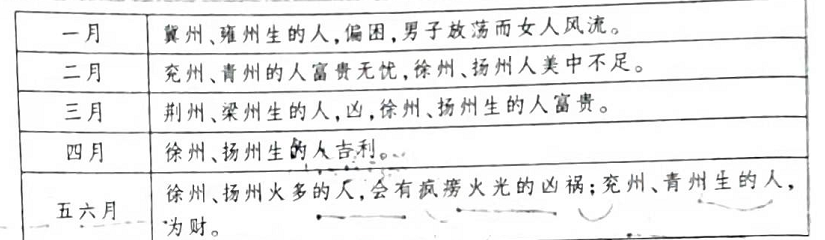 一月 冀州、雍州生的人,偏困,男子放荡而女人风流。
二月 兖州、青州的人富贵无忧,徐州、扬州人美中不足。
三月 荆州、梁州生的人,凶,徐州、扬州生的人富贵。
四月 徐州、扬州生的人吉利。
五六月 徐州、扬州火多的人,会有疯痨火光的凶祸;兖州、青州生的人,
为财。